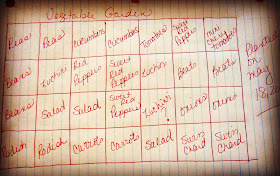 Vegetable Garden
Peas Peas Cucumbers Cucumbers Tomatoes Sweet Red Peppers mini cherry tomatoes
Beans Zuchini Red Peppers Sweet Red Peppers Zuchini Beets Beets
Beans Salad Salad Sweet Red Peppers Zuchini ? Onions Onions
Radish Radish Carrots Carrots Salad Swiss Chard Swiss Chard
Planted
on
May